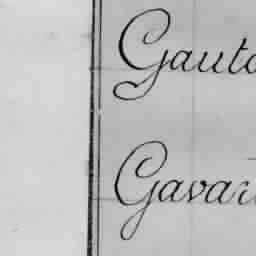 Gauto
Gavar